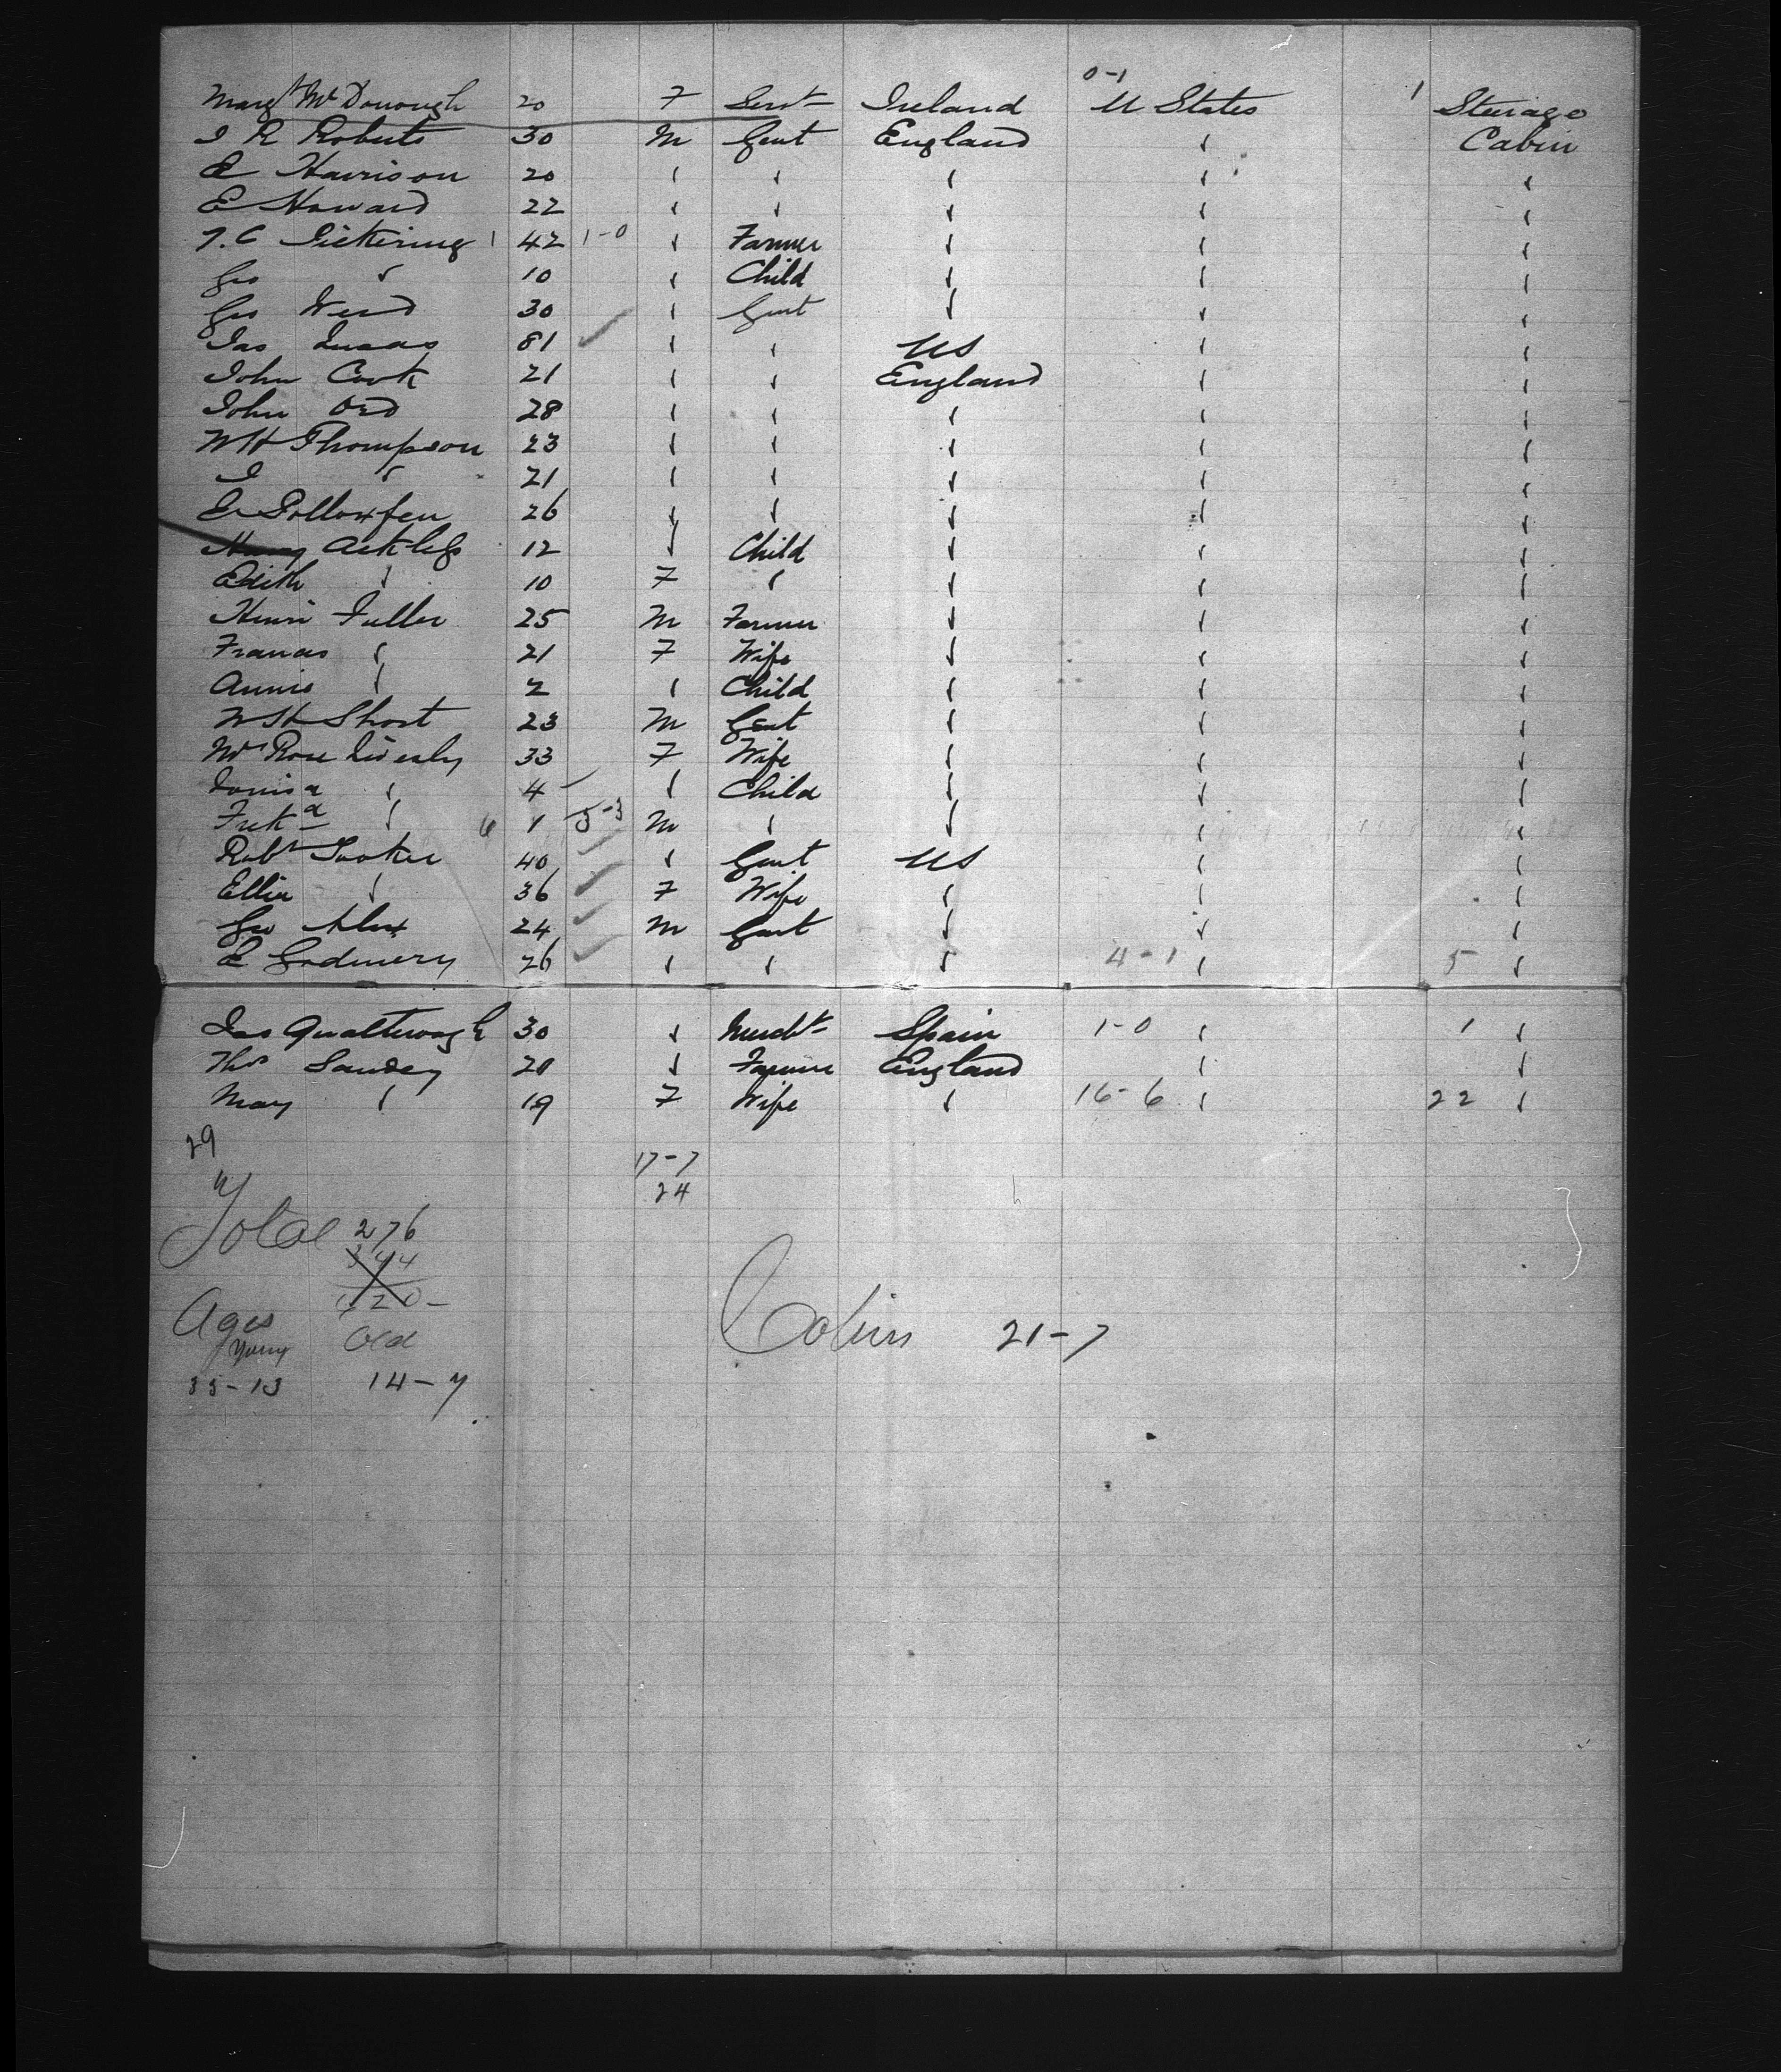 0-1
Margt McDonough 20 F Servt Ireland U States 1 Steerage
I R Roberts 30 M Gent England ✓ Cabin
E Harrison 20 ✓ ✓ ✓ ✓ ✓
E Howard 22 ✓ ✓ ✓ ✓ ✓
T. C Pickering 1 42 1-0 ✓ Farmer ✓ ✓ ✓
Geo ✓ 10 ✓ Child ✓ ✓ ✓
Geo 30 ✓ Gent ✓ ✓ ✓
Jas Lucas 81 ✓ ✓ ✓ US ✓ ✓
John Cook 21 ✓ ✓ England ✓ ✓
John Ord 28 ✓ ✓ ✓ ✓ ✓
W H Thompson 23 ✓ ✓ ✓ ✓ ✓
J ✓ 21 ✓ ✓ ✓ ✓ ✓
E 26 ✓ ✓ ✓ ✓ ✓
12 ✓ Child ✓ ✓ ✓
Edith ✓ 10 F ✓ ✓ ✓ ✓
Henri Fuller 25 M Farmer ✓ ✓ ✓
Frances ✓ 21 F Wife ✓ ✓ ✓
Annie ✓ 2 ✓ Child ✓ ✓ ✓
W H Short 23 M Gent ✓ ✓ ✓
Mrs Rose 33 F Wife ✓ ✓ ✓
Louisa ✓ 4 ✓ Child ✓ ✓ ✓
Fredk ✓ 6 1 3-3 M ✓ ✓ ✓ ✓
Robt Tooker 40 ✓ ✓ Gent US ✓ ✓
Ellen ✓ 36 ✓ F Wife ✓ ✓ ✓
Geo 24 ✓ M Gent ✓ ✓ ✓
E 26 ✓ ✓ ✓ ✓ 4-1 ✓ 5 ✓
Jas Qualtrough 30 ✓ Mercht Spain 1-0 ✓ 1 ✓
Thos Sandey 20 ✓ Farmer England ✓ ✓
Mary ✓ 19 F Wife ✓ 16-6 ✓ 22 ✓
29
17-7
24
Total 276
344
620
Ages
Young Old
35-13 14-7
Cabin 21-7